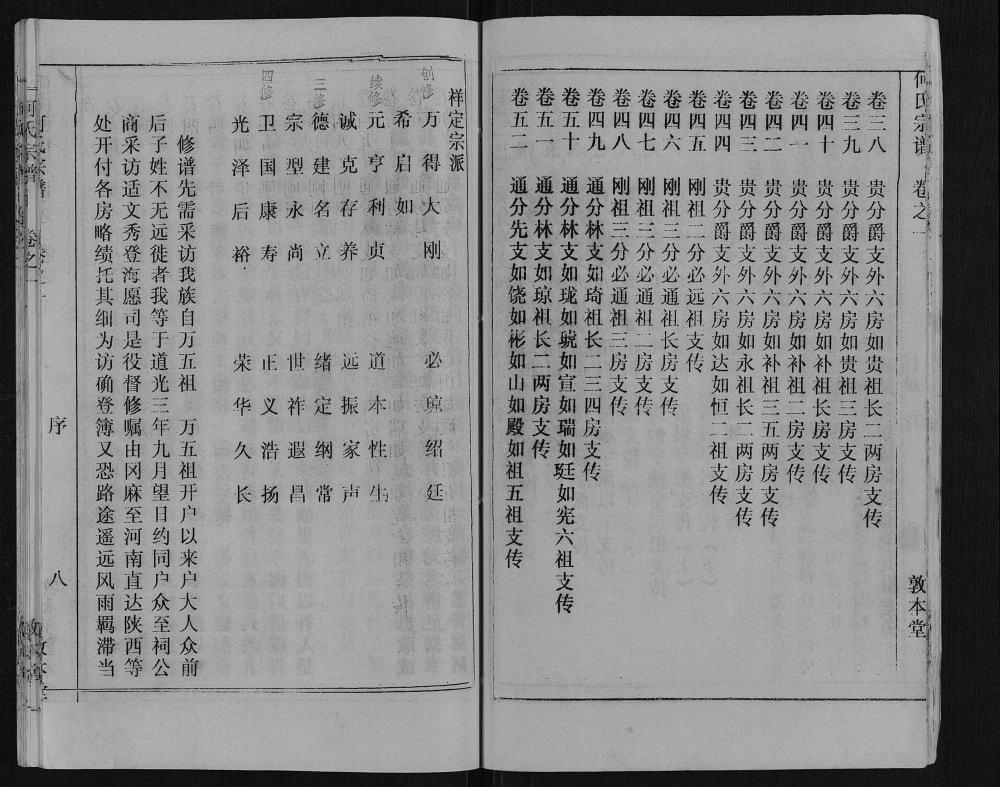 何氏宗谱 卷之一 敦本堂
卷三八 贵分爵支外六房如贵祖长二两房支传
卷三九 贵分爵支外六房如贵祖三房支传
卷四十 贵分爵支外六房如补祖长房支传
卷四一 贵分爵支外六房如补祖二房支传
卷四二 贵分爵支外六房如补祖三五两房支传
卷四三 贵分爵支外六房如永祖长二两房支传
卷四四 贵分爵支外六房如达如恒二祖支传
卷四五 刚祖二分必远祖支传
卷四六 刚祖三分必通祖长房支传
卷四七 刚祖三分必通祖二房支传
卷四八 刚祖三分必通祖三房支传
卷四九 通分林支如琦祖长二三四房支传
卷五十 通分林支如珑如骁如宣如瑞如珽如宪六祖支传
卷五一 通分林支如琼祖长二两房支传
卷五二 通分先支如饶如彬如山如殿如祖五祖支传
祥定宗派
创修 万得大刚 必琼绍廷
希启如
续修 元亨利贞 道本性生
诚克存养 远振家声
三修 德建名立 绪定纲常
宗型永尚 世祚遐昌
四修 卫国康寿 正义浩扬
光泽后裕 荣华久长
修谱先需采访我族自万五祖 万五祖开户以来户大人众前
后子姓不无远徙者我等于道光三年九月望日约同户众至祠公
商采访适文秀登海愿司是役督修嘱由冈麻至河南直达陕西等
处开付各房略绩托其细为访确登簿又恐路途遥远风雨羁滞当
何氏宗谱 卷之一 序 八 敦本堂